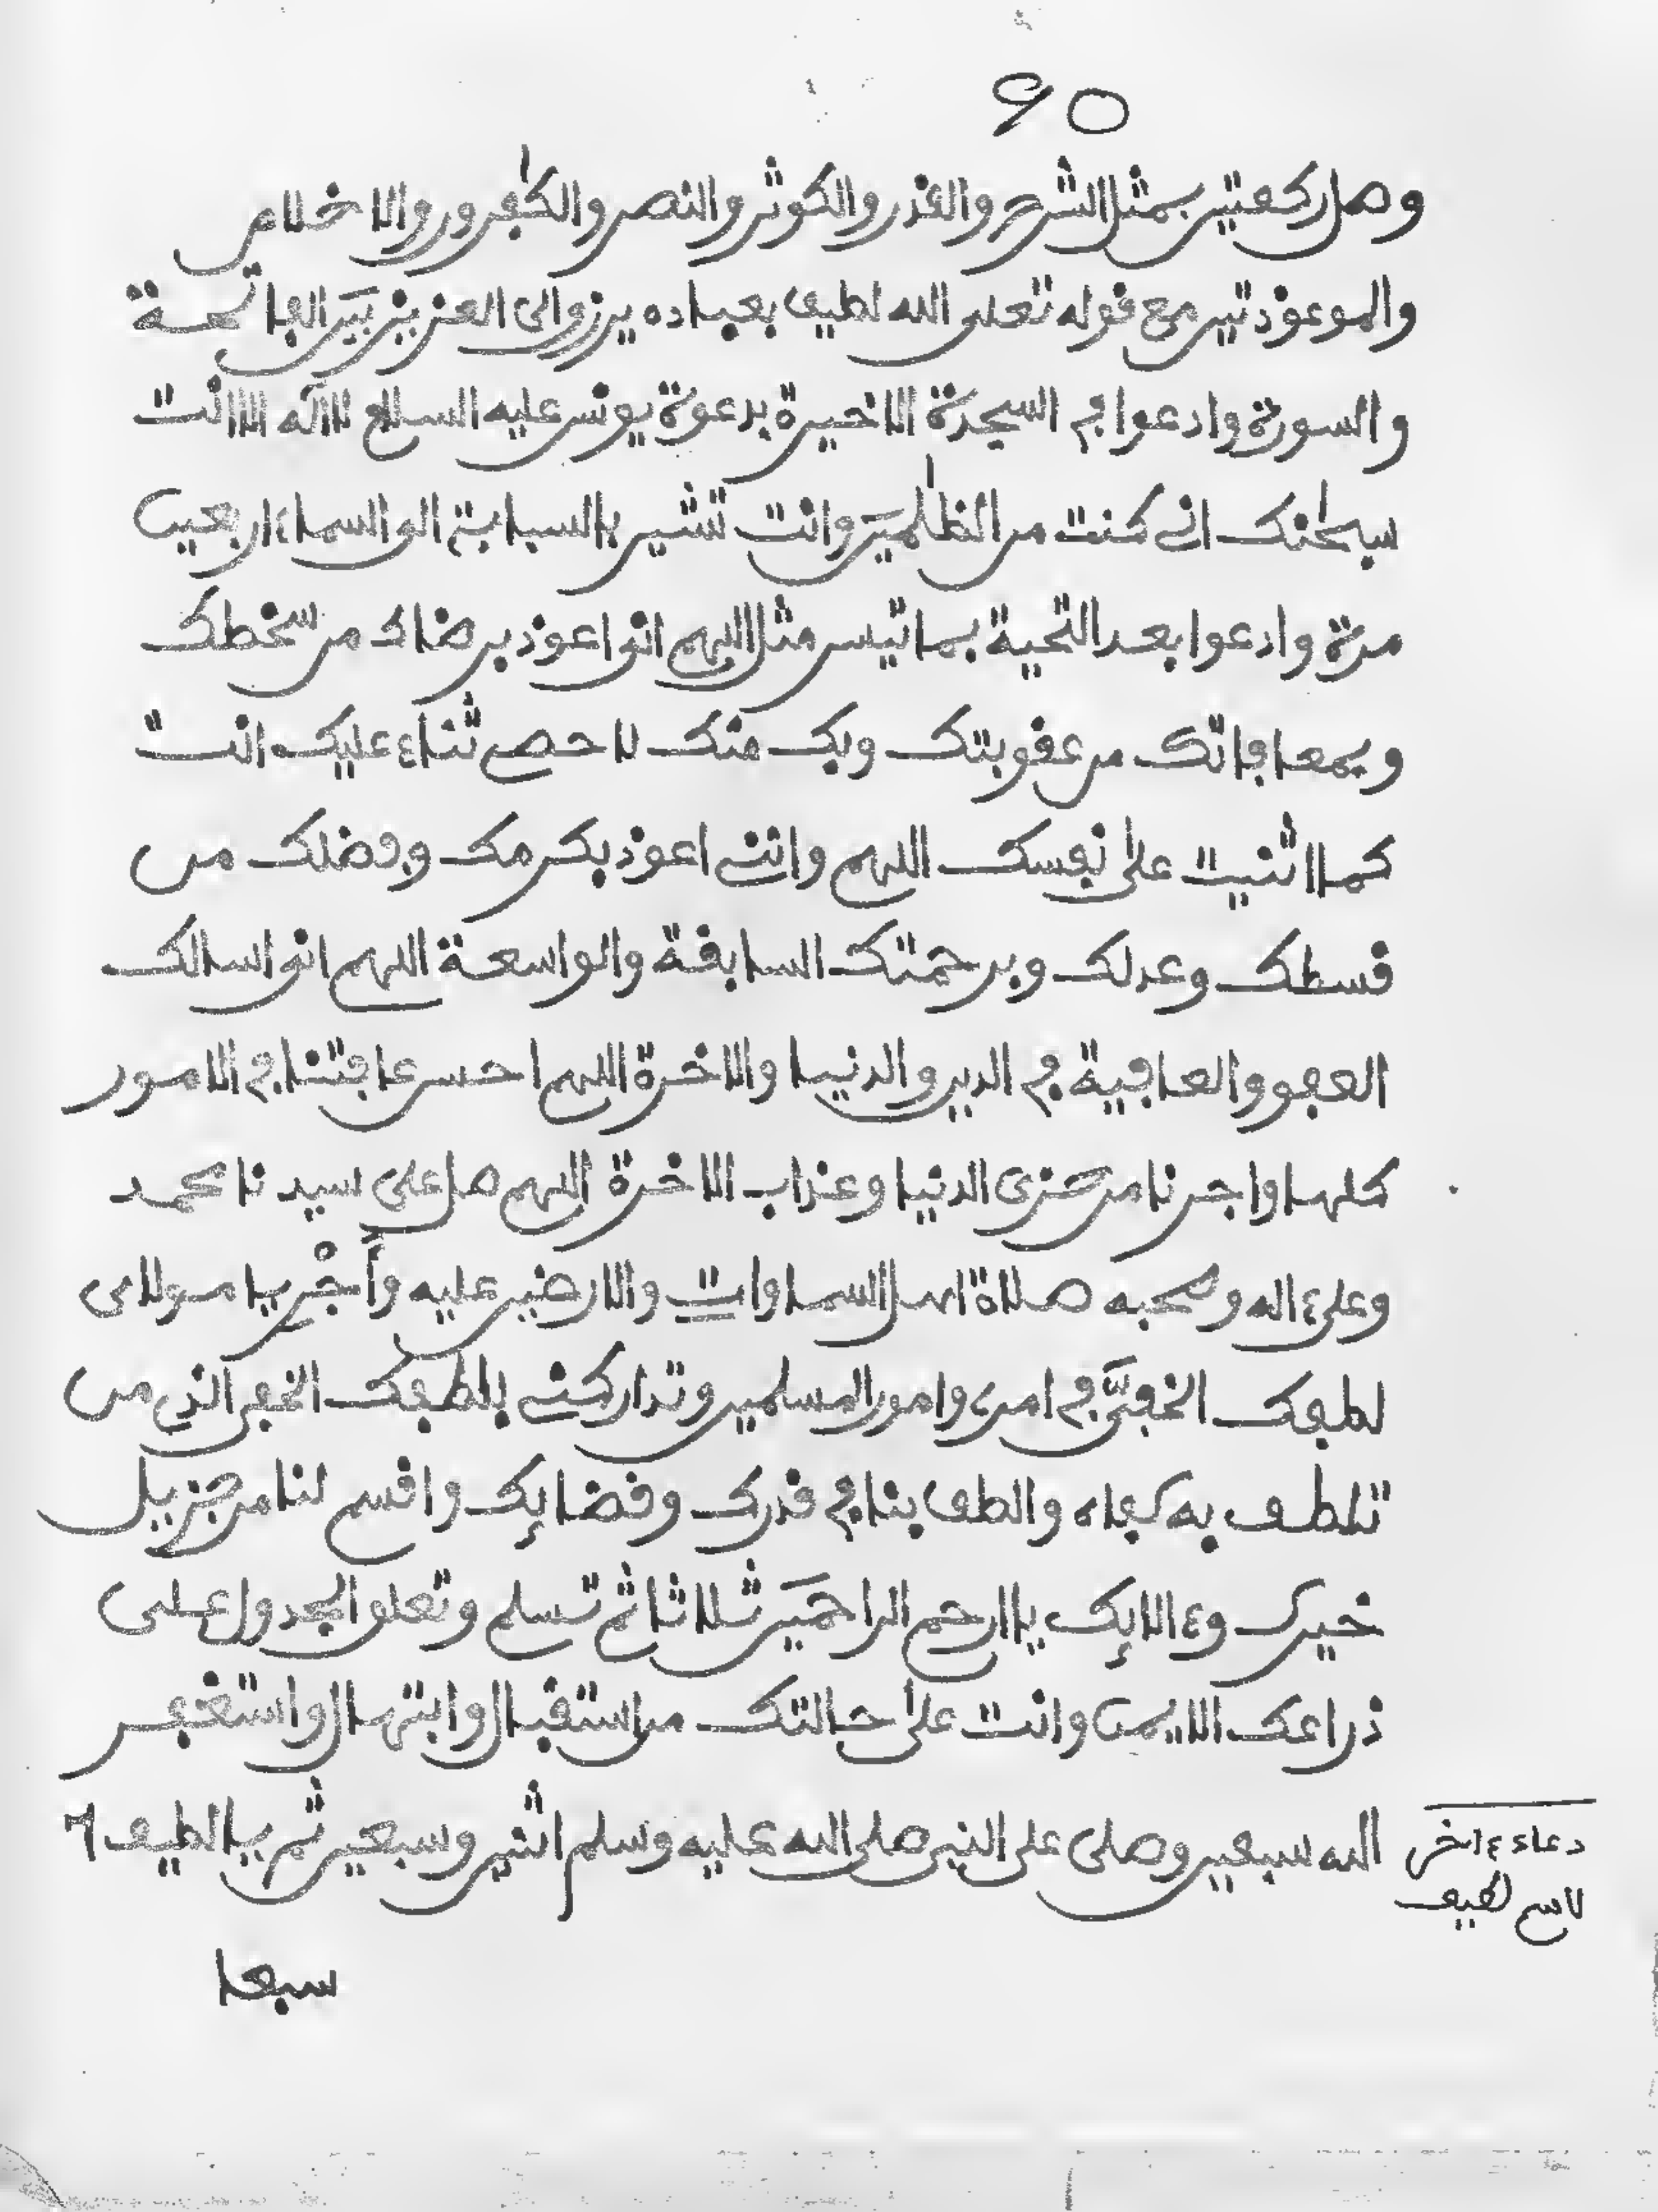 ٩٥
وصل ركعتين بمثل الشرح والقدر والكوثر والنصر والكٰفرون والاخلاص
والموعوذتين مع قوله تعلى الله لطيف بعباده يرزق الى العزيز بين الفاتحة
والسورة وادعوا في السجدة الاخيرة بدعوة يونس عليه السلام لا اله الا انت
سبحٰنك اني كنت من الظٰلمين وانت تشير بالسبابة الى السماء اربعين
مرة وادعوا بعد التحية بما تيسر مثل اللهم اني اعوذ برضاك من سخطك
وبمعافاتك من عقوبتك وبك منك لا احصي ثناء عليك انت
كما اثنيت على نفسك اللهم وانني اعوذ بكرمك وفضلك من
قسطك وعدلك وبرحمتك السابقة والواسعة اللهم اني اسالك
العفو والعافية في الدين والدنيا والاخرة اللهم احسن عاقبتنا في الامور
كلها واجرنا من خزي الدنيا وعذاب الاخرة اللهم صل على سيدنا محمد
وعلى ءاله وصحبه صلاة اهل السماوات والارضين عليه وأجْر يا مولاي
لطفك الخفيَّ في امري وامور المسلمين وتداركني بلطفك الخفي الذي من
تلطف به كفاه والطف بنا في قدرك وقضائك واقسم لنا من جزيل
خيرك وءالائك يا ارحم الراحمين ثلاثا ثم تسلم وتعلق الجدول على
ذراعك الايمن وانت على حالتك من استقبال وابتهال واستغفر
الله سبعين وصلى على النبي صلى الله عليه وسلم اثنين وسبعين ثم يا لطيف ٦
دعاء ءاخر
لاسم لطيف
سبعا